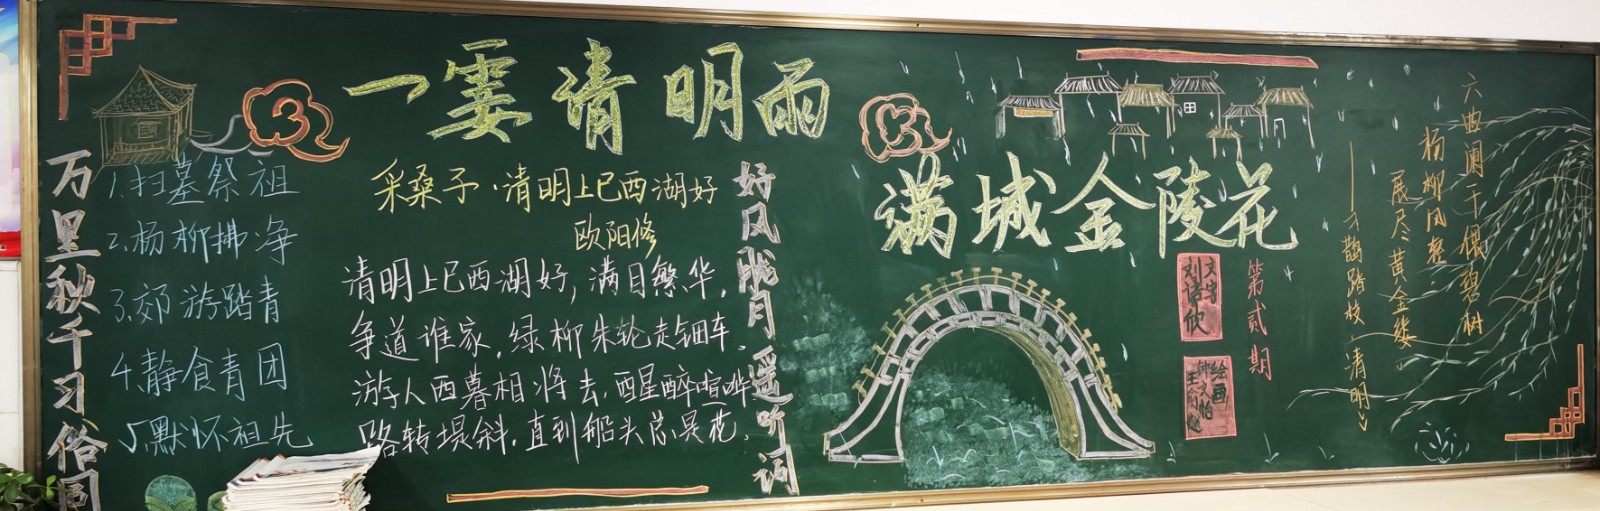 一霎清明雨
满城金陵花
万里秋千习俗同
1.扫墓祭祖
2.杨柳拂净
3.郊游踏青
4.静食青团
5.默怀祖先
采桑子·清明上巳西湖好
欧阳修
清明上巳西湖好，满目繁华。
争道谁家。绿柳朱轮走钿车。
游人西暮相将去，醒醉喧哗。
路转堤斜。直到船头总是花。
好风胧月遥听词
第贰期
文字
刘诗欣
绘画
六曲阑干偎碧树
杨柳风轻
展尽黄金缕
——《鹊踏枝·清明》